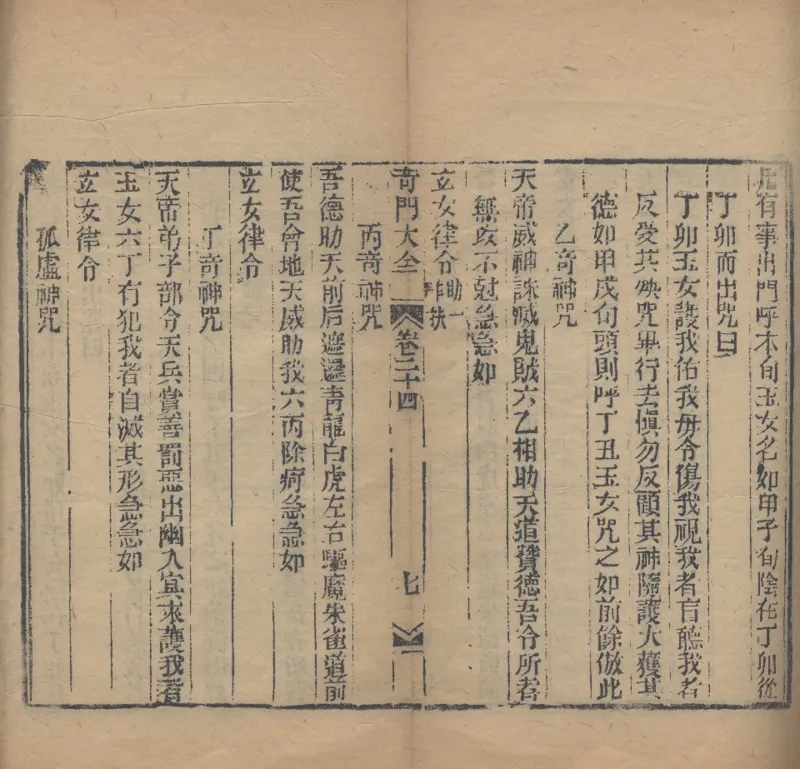 凡有事出門呼本旬玉女名如甲子旬陰在丁卯從
丁卯而出咒曰
丁卯玉女護我佑我毋令傷我視我者盲聽我者
反受其殃咒畢行去慎勿反顧其神隨護大獲其
德如甲戌旬頭則呼丁丑玉女咒之如前餘倣此
乙奇神咒
天帝威神誅滅鬼賊六乙相助天道贊德吾令所者
無攻不尅急急如
玄女律令
奇門大全 卷二十四 七
丙奇神咒
吾德助天前后遮遏青龍白虎左右驅魔朱雀道前
使吾會地天威助我六丙除疴急急如
玄女律令
丁奇神咒
天帝弟子部令天兵賞善罰惡出幽入冥來護我者
玉女六丁有犯我者自滅其形急急如
玄女律令
孤虛神咒